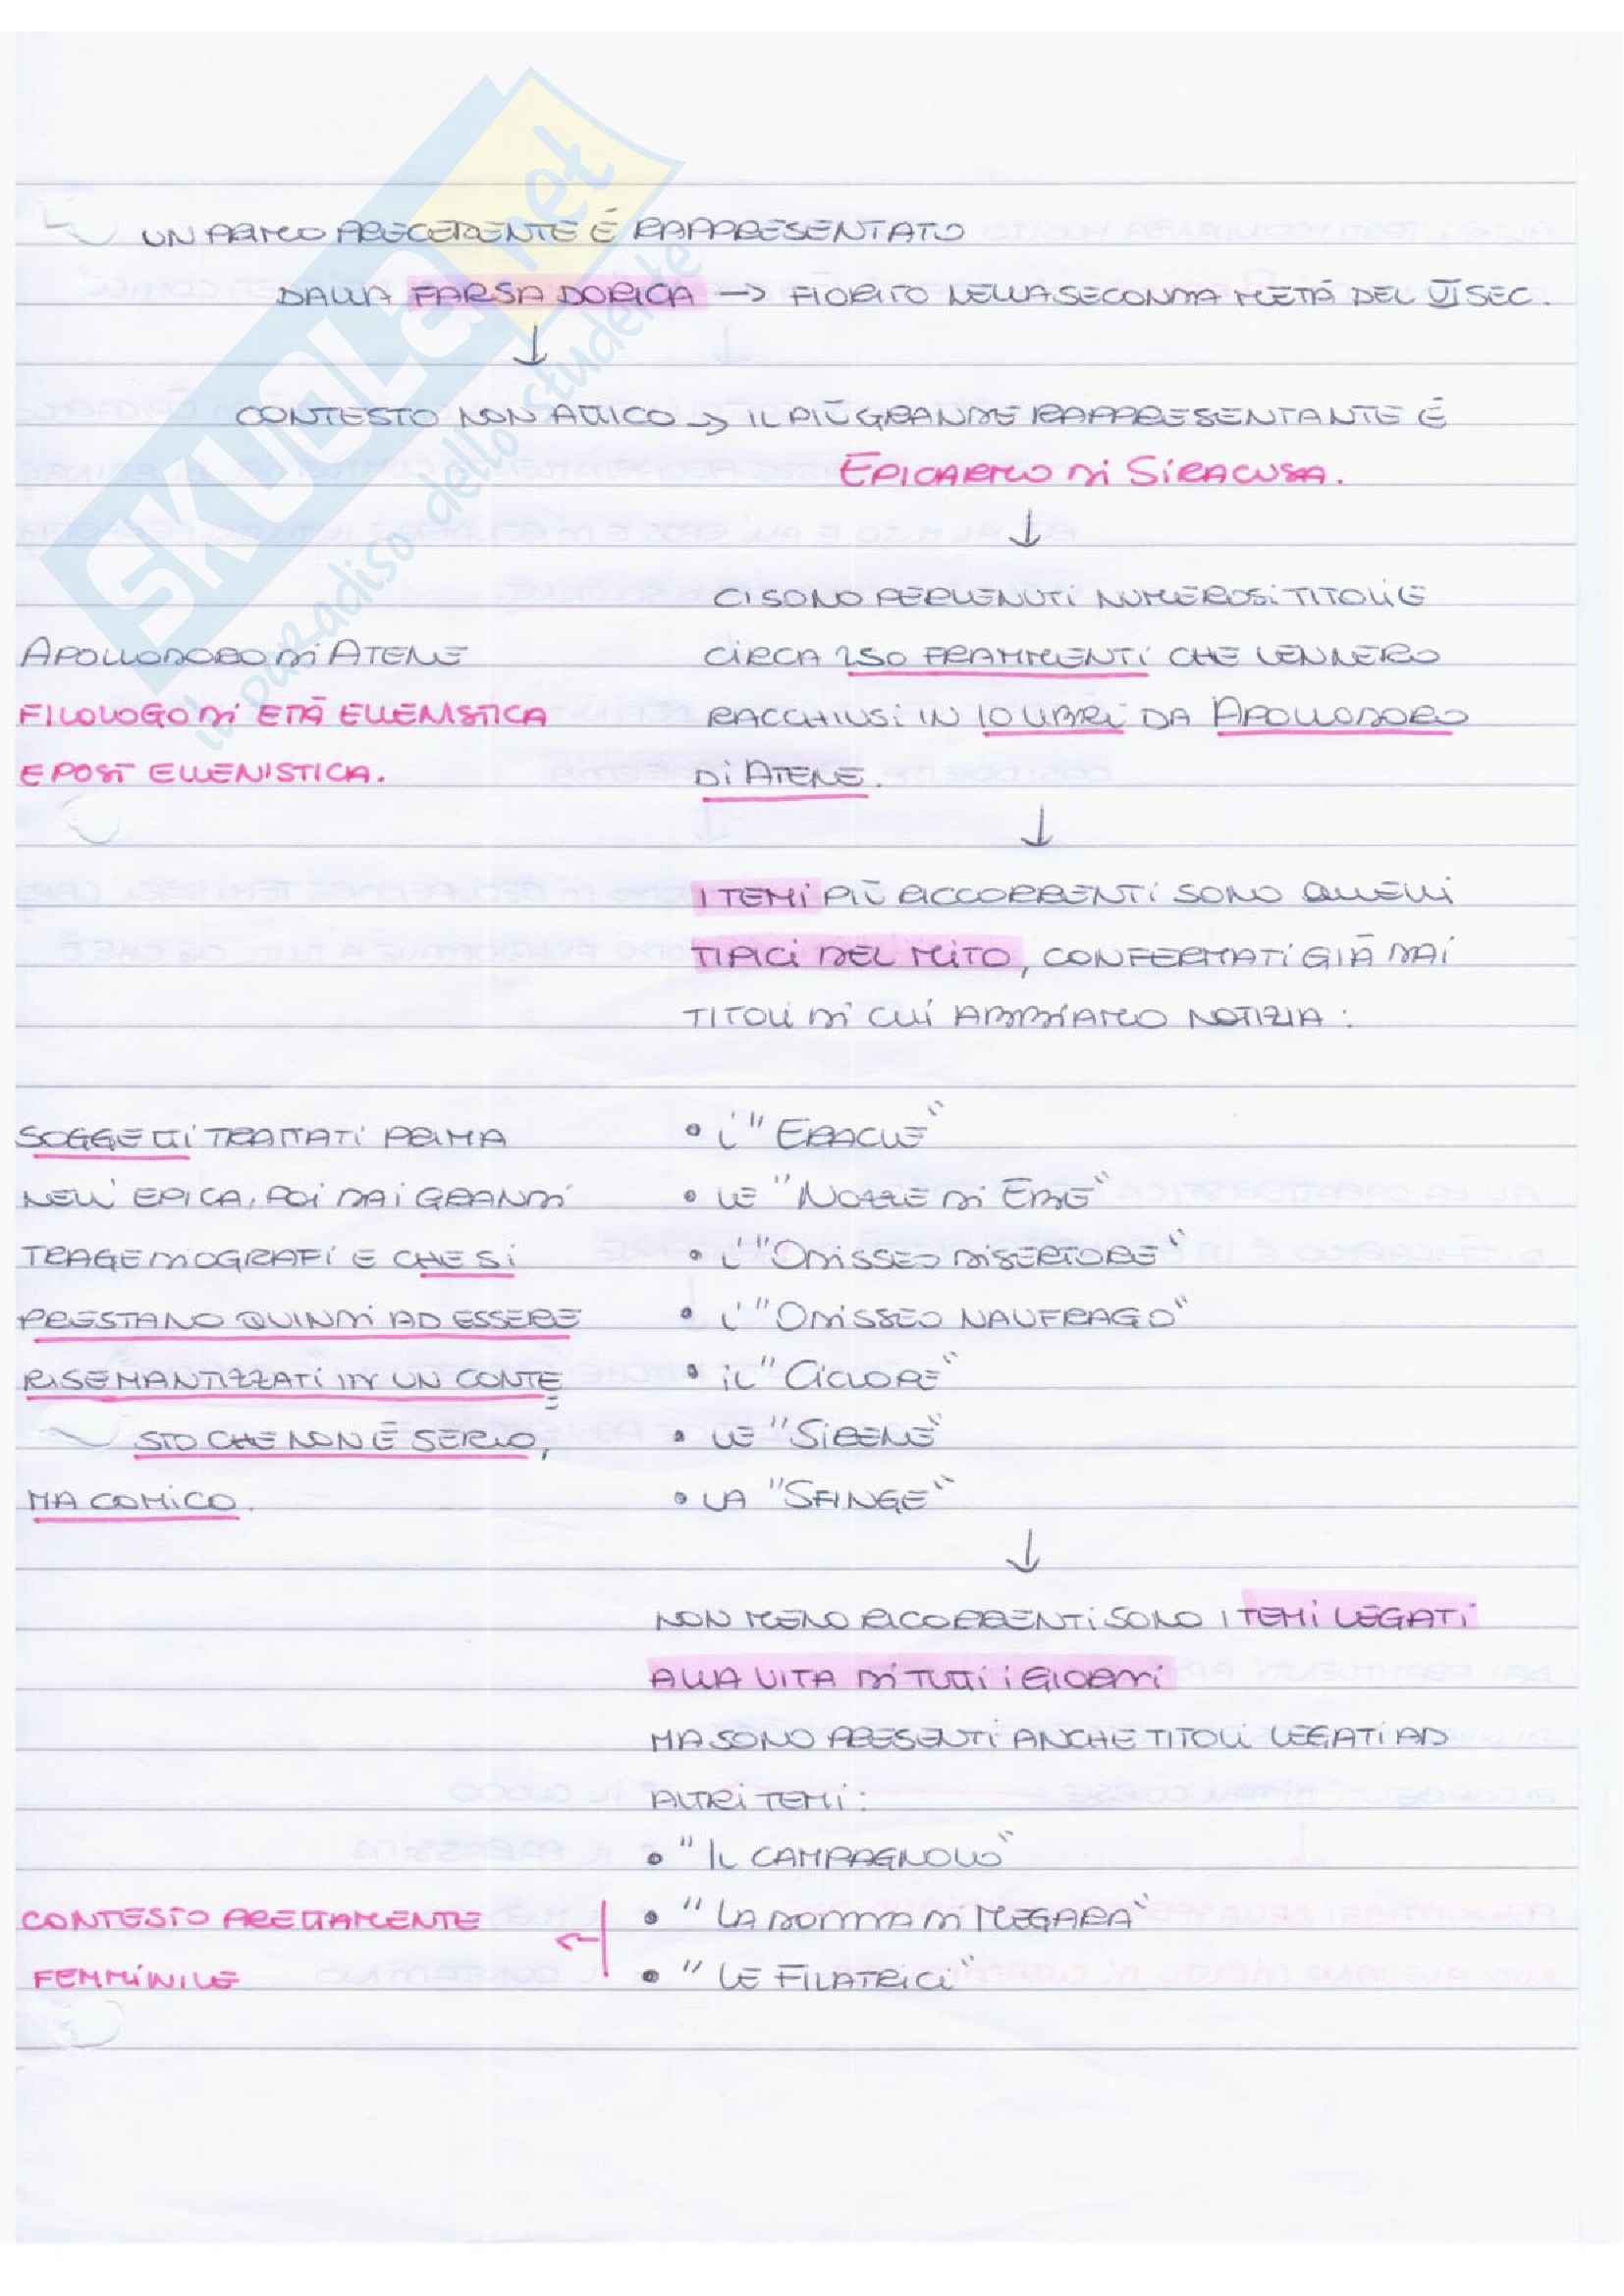 UN PRIMO PRECEDENTE É RAPPRESENTATO
DALLA FARSA DORICA -> FIORITO NELLA SECONDA METÁ DEL VI SEC.
↓
CONTESTO NON ATTICO -> IL PIÚ GRANDE RAPPRESENTANTE É
EPICARMO DI SIRACUSA.
↓
CI SONO PERVENUTI NUMEROSI TITOLI E
CIRCA 250 FRAMMENTI CHE VENNERO
RACCHIUSI IN 10 LIBRI DA APOLLODORO
DI ATENE.
APOLLODORO DI ATENE
FILOLOGO DI ETÁ ELLENISTICA
E POST ELLENISTICA.
↓
I TEMI PIÚ RICCORRENTI SONO QUELLI
TIPICI DEL MITO, CONFERMATI GIÁ DAI
TITOLI DI CUI ABBIAMO NOTIZIA:
• L' "ERACLE"
• LE "NOZZE DI EBE"
• L' "ODISSEO DISERTORE"
• L' "ODISSEO NAUFRAGO"
• IL "CICLOPE"
• LE "SIRENE"
• LA "SFINGE"
SOGGETTI TRATTATI PRIMA
NELL'EPICA, POI DAI GRANDI
TRAGEDIOGRAFI E CHE SI
PRESTANO QUINDI AD ESSERE
RISEMANTIZZATI IN UN CONTE=
STO CHE NON É SERIO,
MA COMICO.
↓
NON MENO RICORRENTI SONO I TEMI LEGATI
ALLA VITA DI TUTTI I GIORNI
MA SONO PRESENTI ANCHE TITOLI LEGATI AD
ALTRI TEMI:
• "IL CAMPAGNOLO"
• "LA DONNA DI MEGARA"
• "LE FILATRICI"
CONTESTO PRETTAMENTE
FEMMINILE
SKUOLA.net
il paradiso dello studente